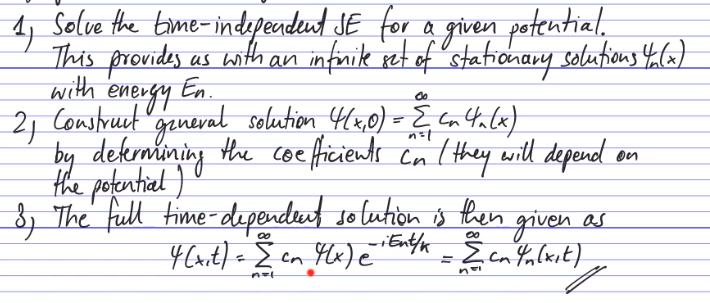 1) Solve the time-independent SE for a given potential.
This provides us with an infinite set of stationary solutions Ψn(x)
with energy En.
2) Construct general solution Ψ(x,0) = ∑_{n=1}^{∞} cn Ψn(x)
by determining the coefficients cn (they will depend on
the potential)
3) The full time-dependent solution is then given as
Ψ(x,t) = ∑_{n=1}^{∞} cn Ψ(x) e^{-iEnt/ħ} = ∑_{n=1}^{∞} cn Ψn(x,t)